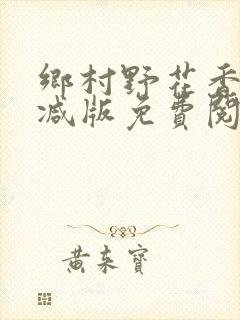 鄉村野花香
減版免費閱
黃東寶